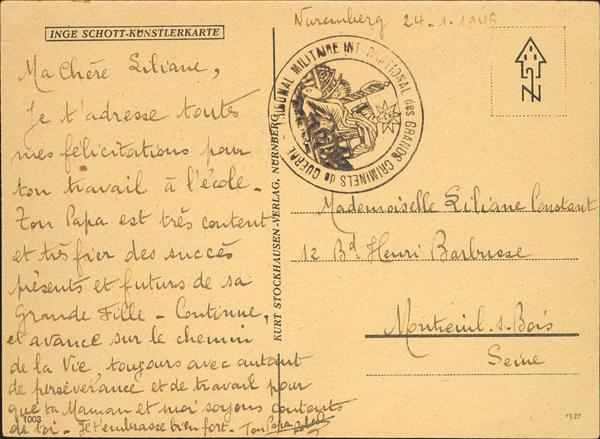 Nuremberg 24-1-1946
INGE SCHOTT-KÜNSTLERKARTE
Ma Chère Liliane,
Je t'adresse toutes
mes félicitations pour
ton travail à l'école -
Ton Papa est très content
et très fier des succès
présents et futurs de sa
Grande Fille - Continue,
et avance sur le chemin
de la Vie, toujours avec autant
de persévérance et de travail pour
que ta Maman et moi soyons contents
de toi - Je t'embrasse bien fort - Ton Papa
1003
KURT STOCKHAUSEN-VERLAG, NÜRNBERG
TRIBUNAL MILITAIRE INTERNATIONAL des GRANDS CRIMINELS de GUERRE
N
Mademoiselle Liliane Constant
12 Bd. Henri Barbusse
Montreuil-s-Bois
Seine